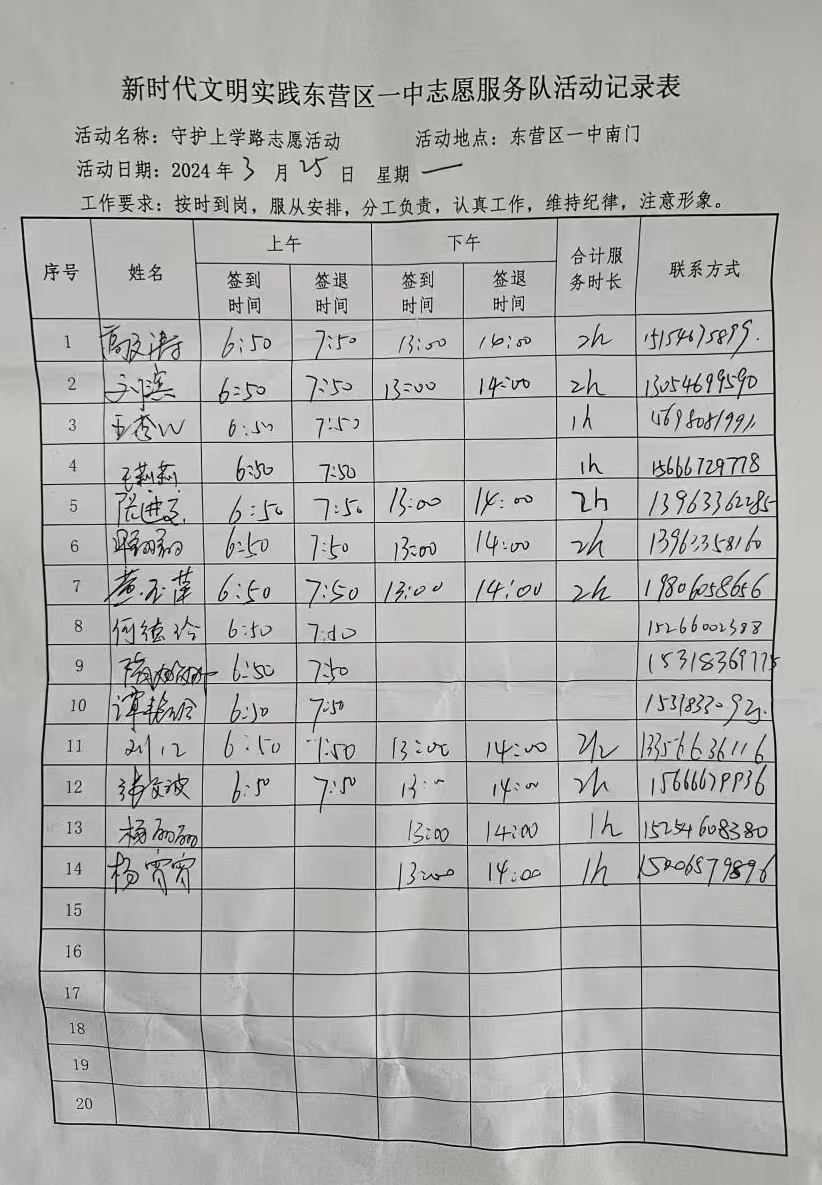 新时代文明实践东营区一中志愿服务队活动记录表
活动名称：守护上学路志愿活动 活动地点：东营区一中南门
活动日期：2024年3月25日 星期一
工作要求：按时到岗，服从安排，分工负责，认真工作，维持纪律，注意形象。
序号 姓名 上午 下午 合计服务时长 联系方式
签到时间 签退时间 签到时间 签退时间
1 6:50 7:50 13:00 14:00 2h 15154675899.
2 刘滨 6:50 7:50 13:00 14:00 2h 13054699590
3 6:50 7:50 1h
4 王莉莉 6:50 7:50 1h 15666729778
5 6:50 7:50 13:00 14:00 2h 13963362285
6 6:50 7:50 13:00 14:00 2h 13963358160
7 黄玉萍 6:50 7:50 13:00 14:00 2h 19806058656
8 何德玲 6:50 15266002388
9 6:50 7:50 15318369775
10 谭艳玲 6:50 7:50
11 刘江 6:50 7:50 13:00 14:00 2h 13356636116
12 6:50 7:50 13:00 14:00 2h 15666679936
13 杨丽丽 13:00 14:00 1h 15254608380
14 杨霄霄 13:00 14:00 1h 15206579896
15
16
17
18
19
20